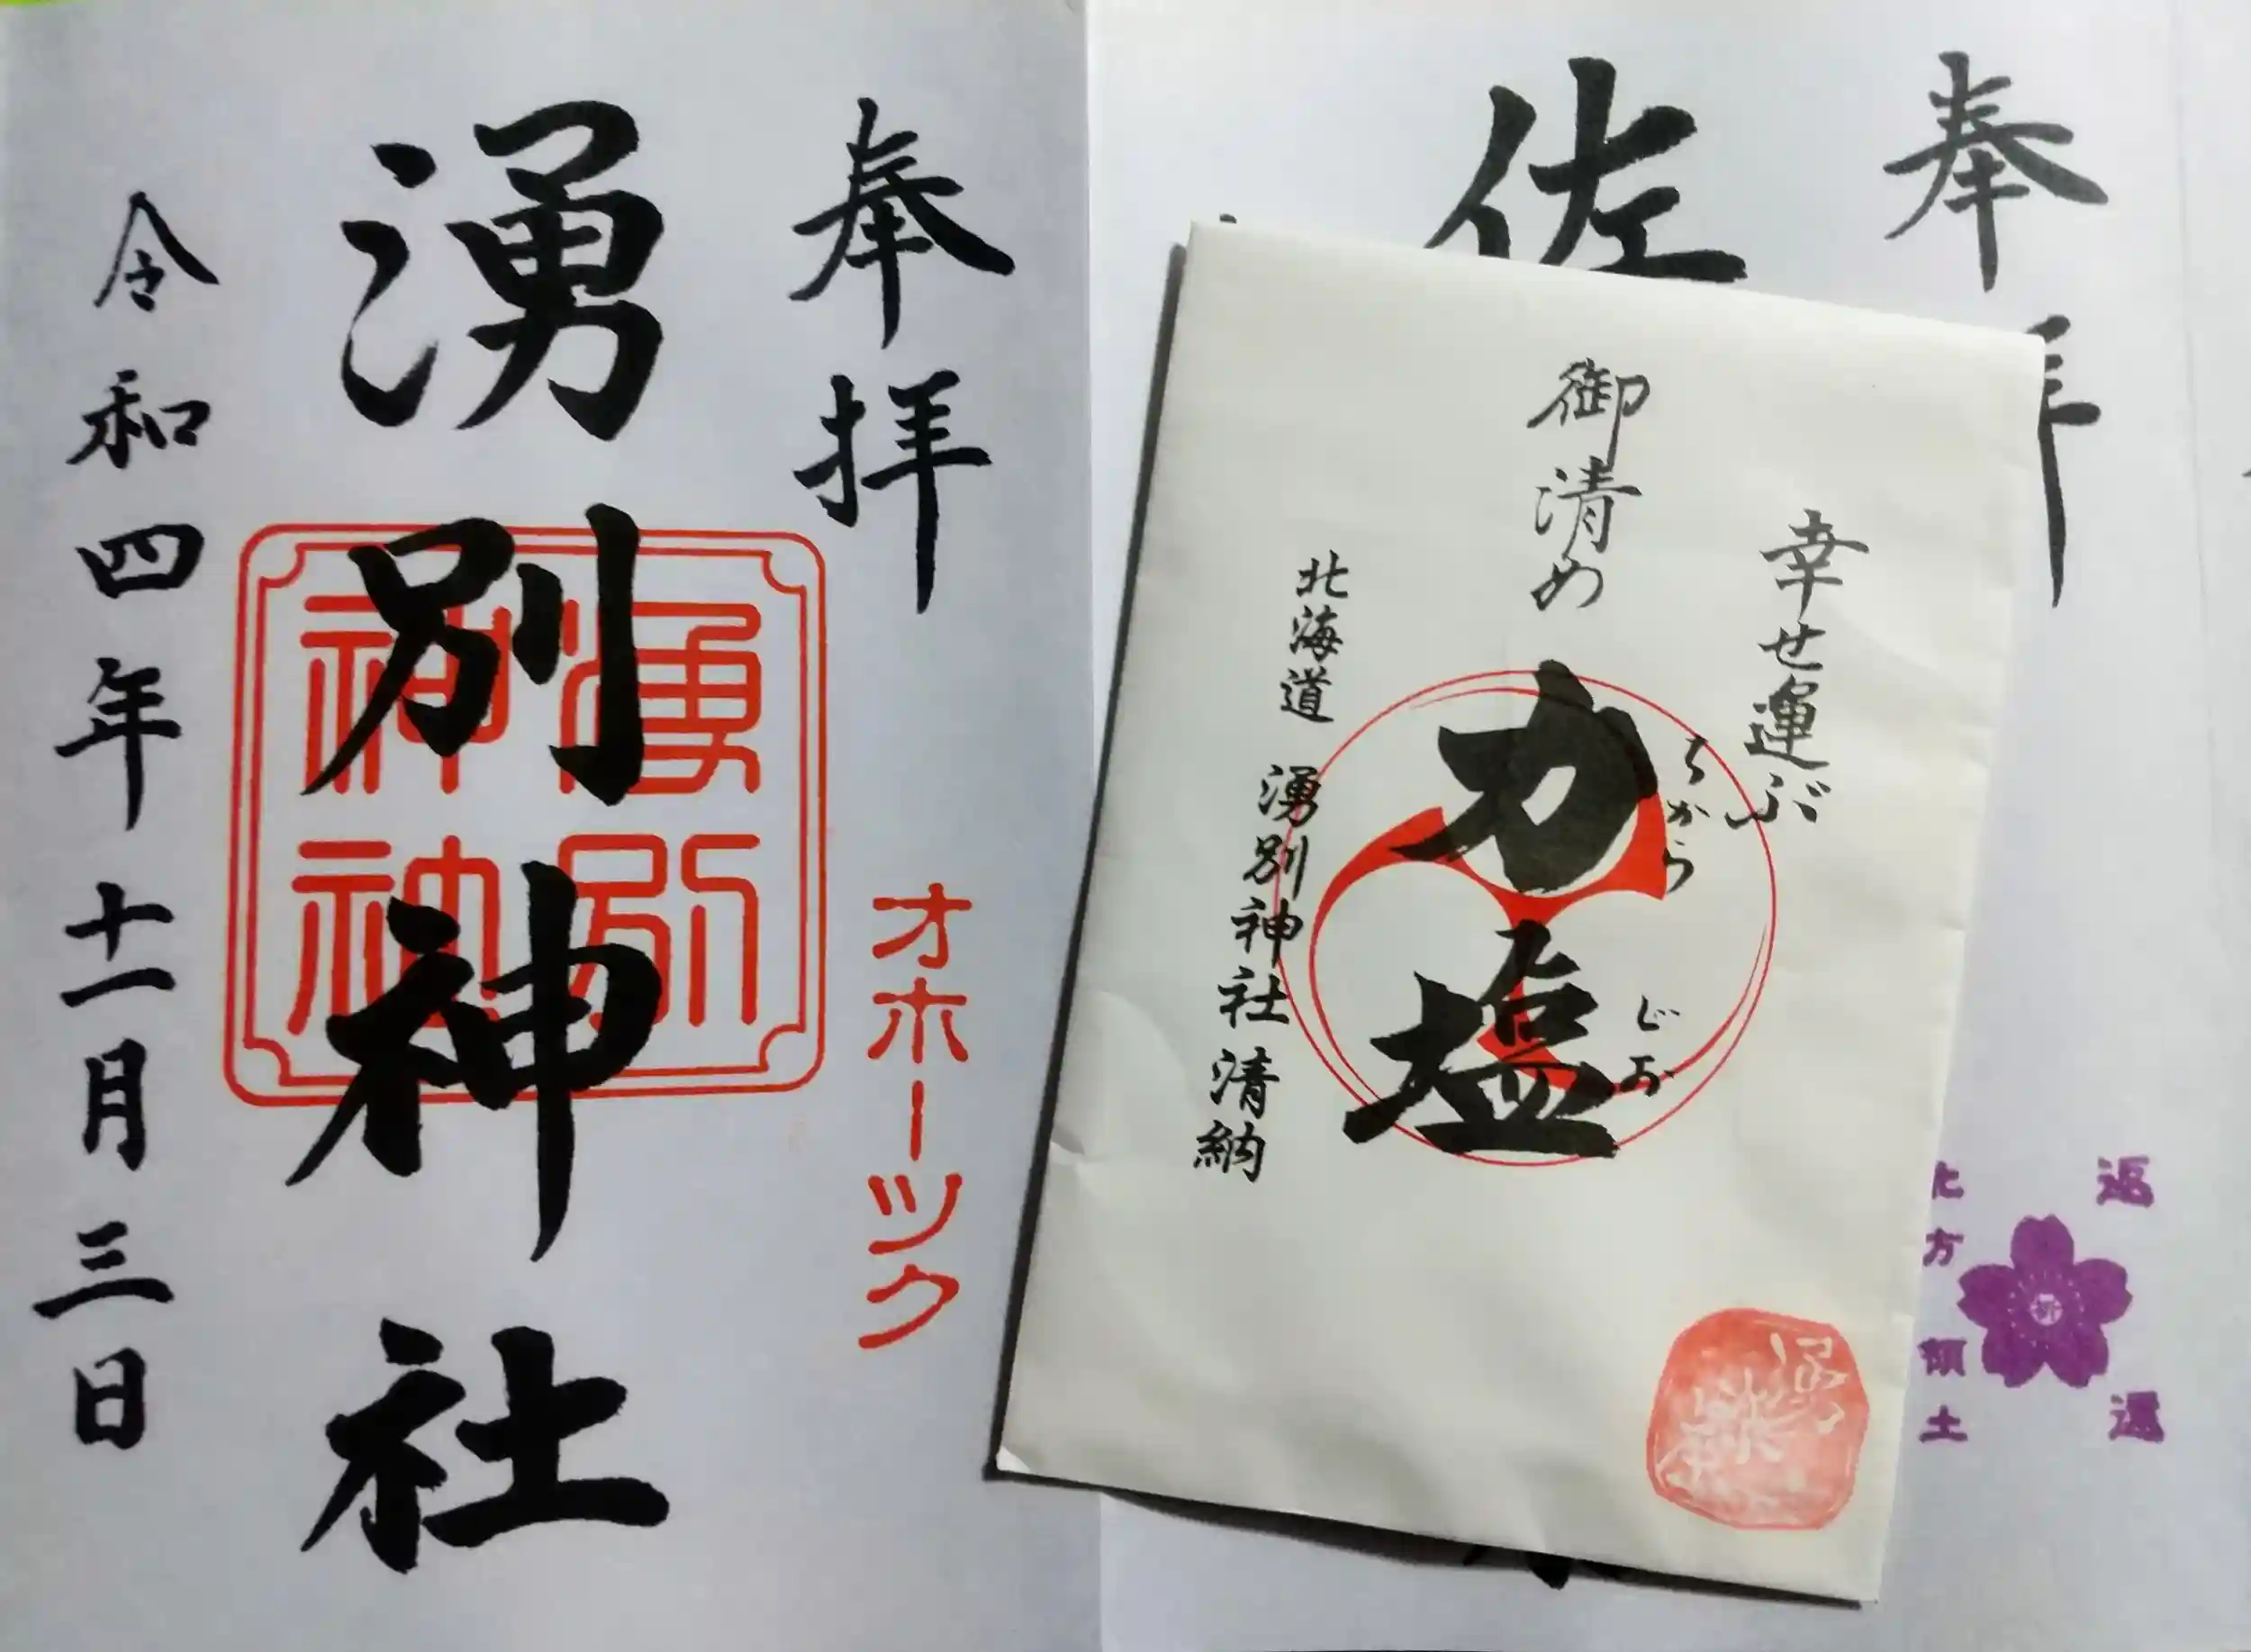 奉拝
湧別神社
令和四年十一月三日
オホーツク
湧別神社
奉
佐
幸せ運ぶ
御清め
力塩
ちから
じお
北海道 湧別神社 清納
北方領土